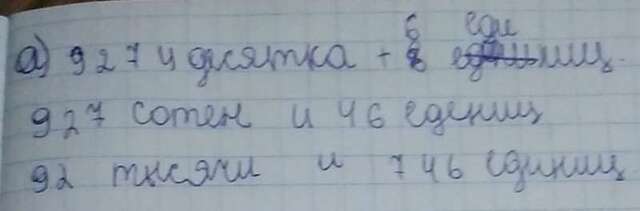 а) 9274 десятка + 6 единиц.
927 сотен и 46 едениц
92 тысячи и 746 единиц